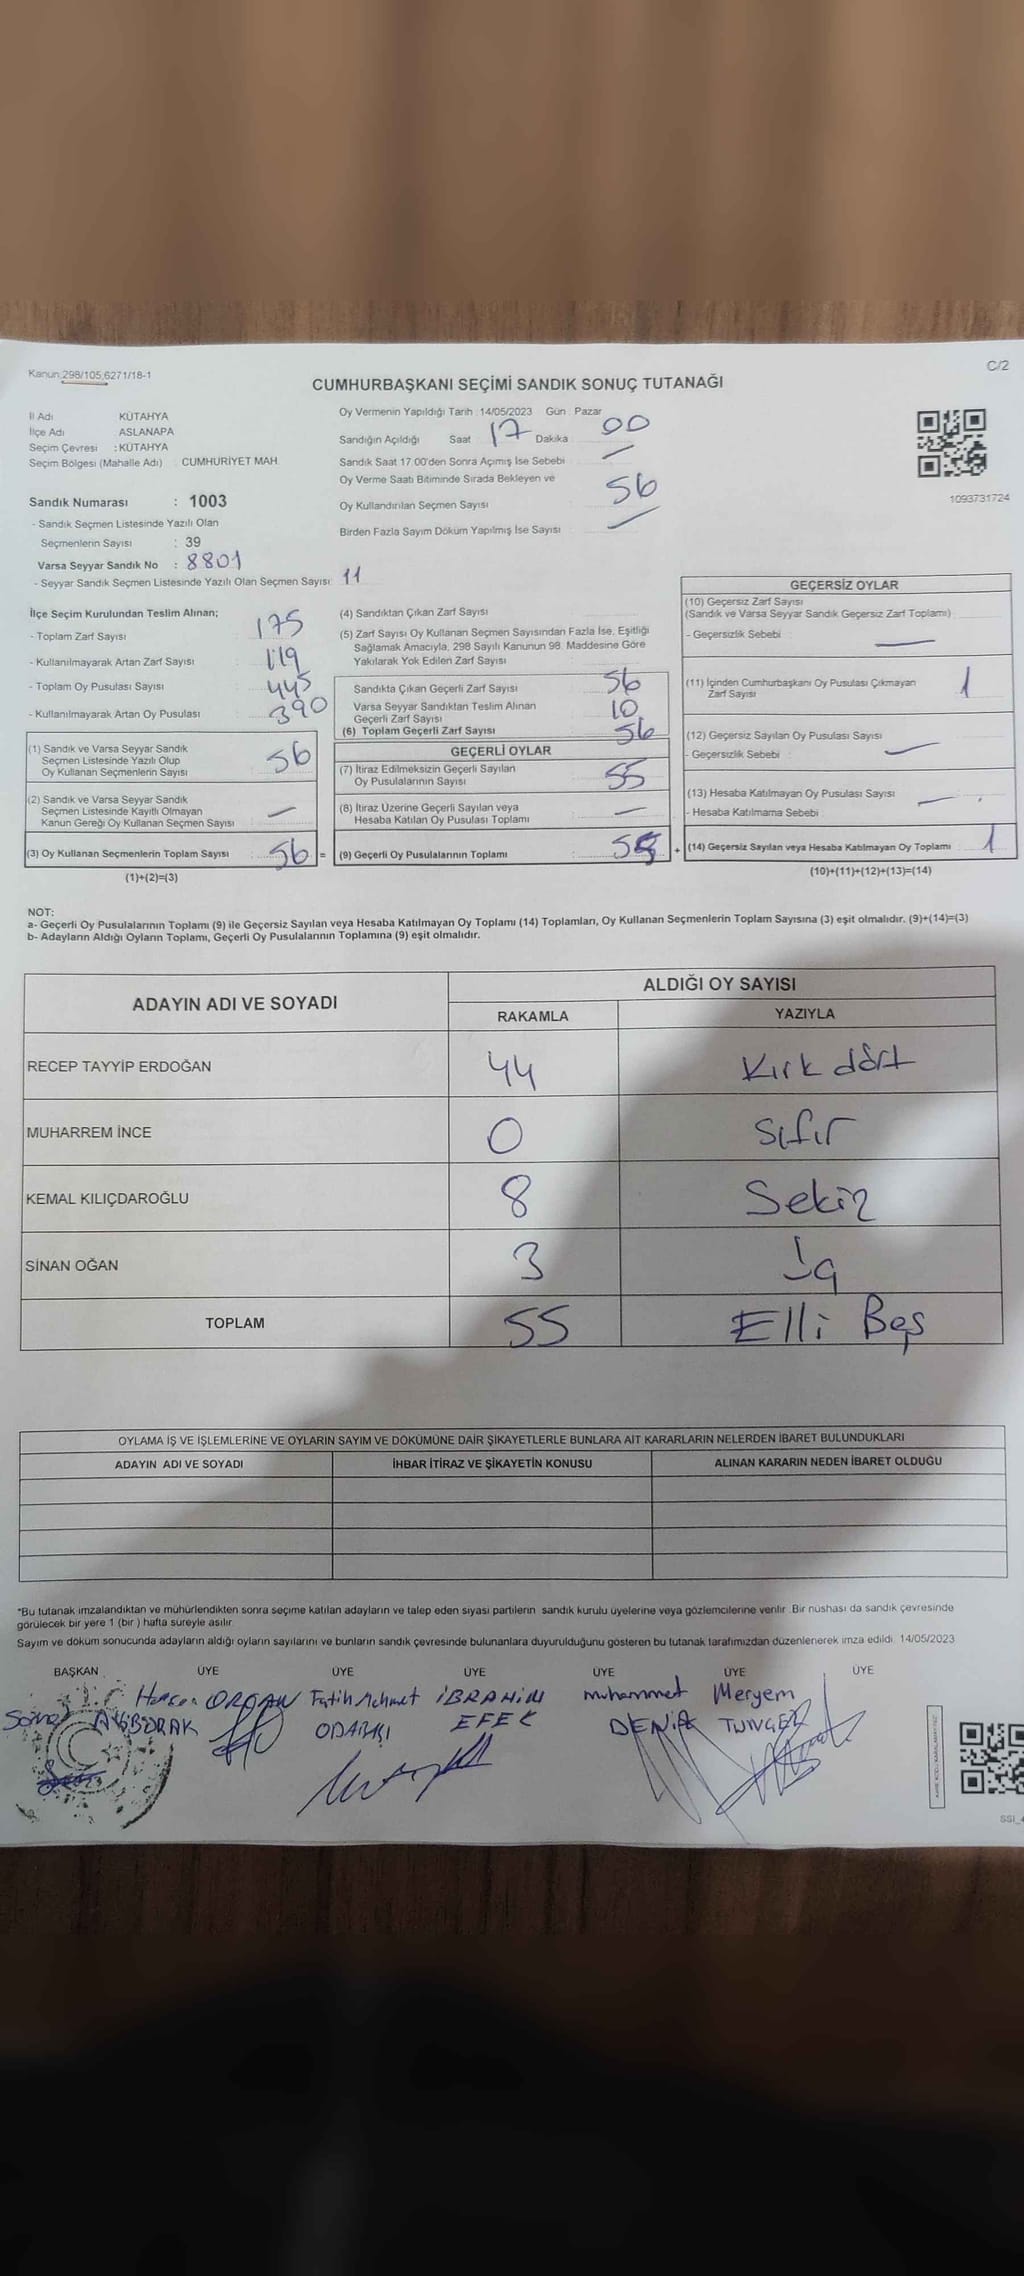 Kanun:298/105,6271/18-1
C/2
CUMHURBAŞKANI SEÇİMİ SANDIK SONUÇ TUTANAĞI
İl Adı KÜTAHYA
İlçe Adı ASLANAPA
Seçim Çevresi : KÜTAHYA
Seçim Bölgesi (Mahalle Adı) CUMHURİYET MAH.
Sandık Numarası : 1003
- Sandık Seçmen Listesinde Yazılı Olan
Seçmenlerin Sayısı : 39
Varsa Seyyar Sandık No : 8801
- Seyyar Sandık Seçmen Listesinde Yazılı Olan Seçmen Sayısı: 11
Oy Vermenin Yapıldığı Tarih : 14/05/2023 Gün : Pazar
Sandığın Açıldığı Saat 17 Dakika 00
Sandık Saat 17.00'den Sonra Açımış İse Sebebi —
Oy Verme Saati Bitiminde Sırada Bekleyen ve
Oy Kullandırılan Seçmen Sayısı 56
Birden Fazla Sayım Döküm Yapılmış İse Sayısı —
1093731724
İlçe Seçim Kurulundan Teslim Alınan;
- Toplam Zarf Sayısı 175
- Kullanılmayarak Artan Zarf Sayısı 119
- Toplam Oy Pusulası Sayısı 445
- Kullanılmayarak Artan Oy Pusulası 390
(1) Sandık ve Varsa Seyyar Sandık
Seçmen Listesinde Yazılı Olup
Oy Kullanan Seçmenlerin Sayısı 56
(2) Sandık ve Varsa Seyyar Sandık
Seçmen Listesinde Kayıtlı Olmayan
Kanun Gereği Oy Kullanan Seçmen Sayısı —
(3) Oy Kullanan Seçmenlerin Toplam Sayısı : 56 =
(1)+(2)=(3)
(4) Sandıktan Çıkan Zarf Sayısı
(5) Zarf Sayısı Oy Kullanan Seçmen Sayısından Fazla İse, Eşitliği
Sağlamak Amacıyla, 298 Sayılı Kanunun 98. Maddesine Göre
Yakılarak Yok Edilen Zarf Sayısı
Sandıkta Çıkan Geçerli Zarf Sayısı 56
Varsa Seyyar Sandıktan Teslim Alınan
Geçerli Zarf Sayısı 10
(6) Toplam Geçerli Zarf Sayısı 56
GEÇERLİ OYLAR
(7) İtiraz Edilmeksizin Geçerli Sayılan
Oy Pusulalarının Sayısı 55
(8) İtiraz Üzerine Geçerli Sayılan veya
Hesaba Katılan Oy Pusulası Toplamı —
(9) Geçerli Oy Pusulalarının Toplamı : 55 +
GEÇERSİZ OYLAR
(10) Geçersiz Zarf Sayısı
(Sandık ve Varsa Seyyar Sandık Geçersiz Zarf Toplamı)
- Geçersizlik Sebebi —
(11) İçinden Cumhurbaşkanı Oy Pusulası Çıkmayan
Zarf Sayısı 1
(12) Geçersiz Sayılan Oy Pusulası Sayısı
- Geçersizlik Sebebi : —
(13) Hesaba Katılmayan Oy Pusulası Sayısı —
- Hesaba Katılmama Sebebi :
(14) Geçersiz Sayılan veya Hesaba Katılmayan Oy Toplamı 1
(10)+(11)+(12)+(13)=(14)
NOT:
a- Geçerli Oy Pusulalarının Toplamı (9) ile Geçersiz Sayılan veya Hesaba Katılmayan Oy Toplamı (14) Toplamları, Oy Kullanan Seçmenlerin Toplam Sayısına (3) eşit olmalıdır. (9)+(14)=(3)
b- Adayların Aldığı Oyların Toplamı, Geçerli Oy Pusulalarının Toplamına (9) eşit olmalıdır.
ADAYIN ADI VE SOYADI ALDIĞI OY SAYISI
RAKAMLA YAZIYLA
RECEP TAYYİP ERDOĞAN 44 Kırk dört
MUHARREM İNCE 0 Sıfır
KEMAL KILIÇDAROĞLU 8 Sekiz
SİNAN OĞAN 3 Üç
TOPLAM 55 Elli Beş
OYLAMA İŞ VE İŞLEMLERİNE VE OYLARIN SAYIM VE DÖKÜMÜNE DAİR ŞİKAYETLERLE BUNLARA AİT KARARLARIN NELERDEN İBARET BULUNDUKLARI
ADAYIN ADI VE SOYADI İHBAR İTİRAZ VE ŞİKAYETİN KONUSU ALINAN KARARIN NEDEN İBARET OLDUĞU
*Bu tutanak imzalandıktan ve mühürlendikten sonra seçime katılan adayların ve talep eden siyasi partilerin sandık kurulu üyelerine veya gözlemcilerine verilir. Bir nüshası da sandık çevresinde
görülecek bir yere 1 (bir ) hafta süreyle asılır.
Sayım ve döküm sonucunda adayların aldığı oyların sayılarını ve bunların sandık çevresinde bulunanlara duyurulduğunu gösteren bu tutanak tarafımızdan düzenlenerek imza edildi. 14/05/2023
BAŞKAN ÜYE ÜYE ÜYE ÜYE ÜYE ÜYE
Fatih Mehmet İBRAHİM Muhammet Meryem
EFEK